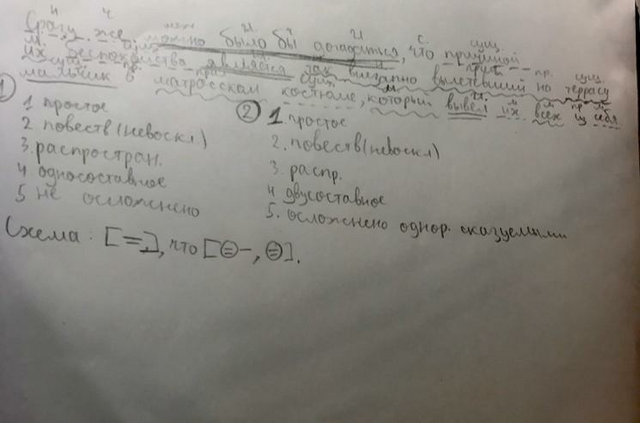 Сразу же можно было бы догадаться, что причиной
их беспокойства являлся так внезапно вылетевший на террасу
мальчик в матросском костюме, который вывел их всех из себя
1 1 простое
2. повеств(невоскл)
3. распростран.
4 односоставное
5 не осложнено
2 1 простое
2. повеств(невоскл)
3. распр.
4 двусоставное
5. осложнено однор. сказуемыми
Схема. [=], что [= -, =].